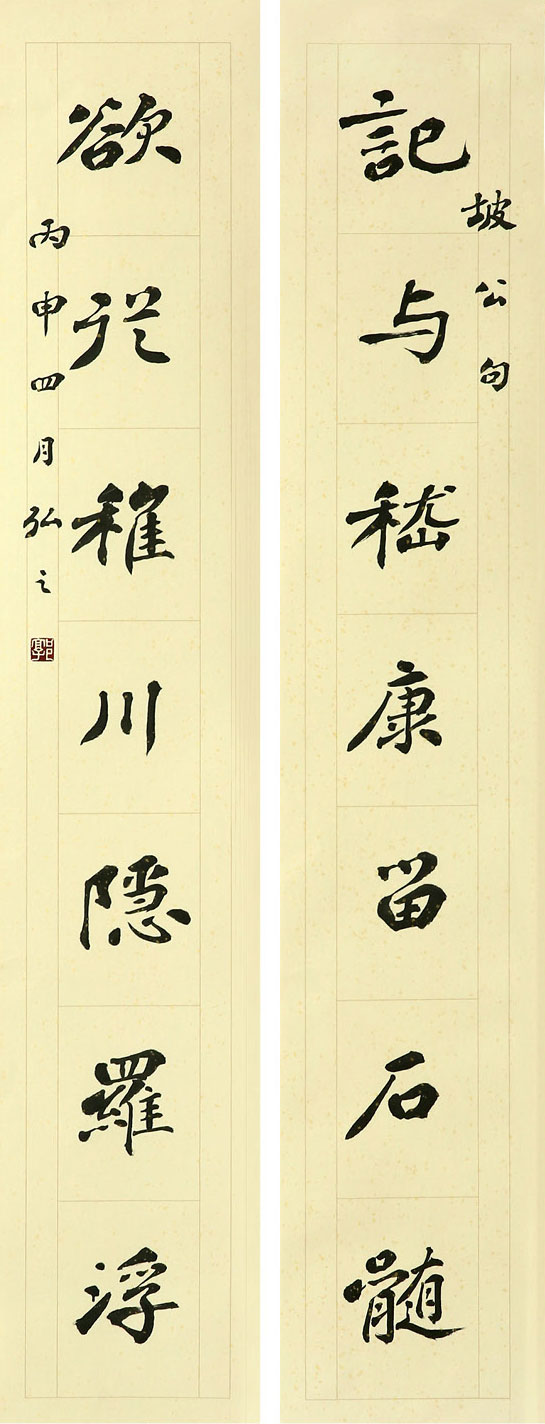 坡公句
記与嵇康留石髓
欲從稚川隱羅浮
丙申四月弘之
郭